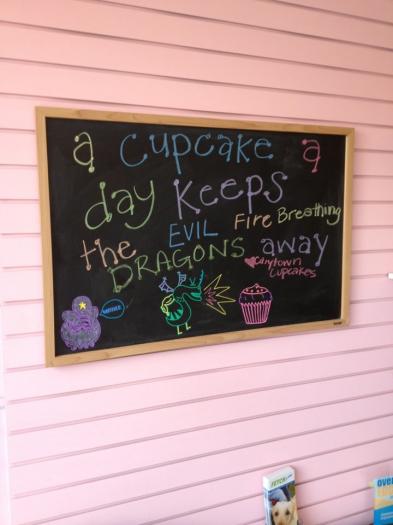 a Cupcake a
day Keeps
the EVIL Fire Breathing
DRAGONS away
Carytown
Cupcakes
FETCH
over